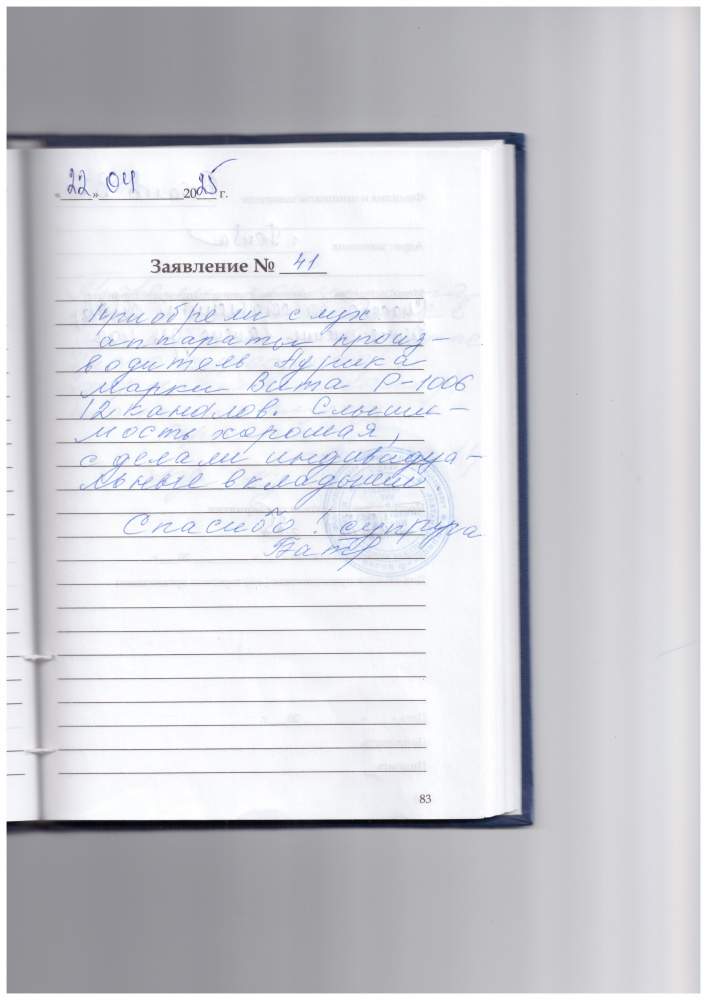 «22» 04 2025 г.
Заявление № 41
Приобрели слух
аппараты произ-
водитель Аурика
марки Вита Р-1006
12 каналов. Слыши-
мость хорошая,
сделали индивидуа-
льные вкладыши
Спасибо! супруга
83